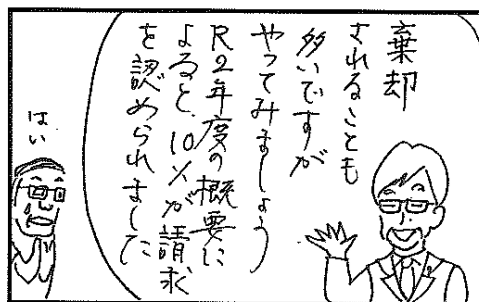 棄却
されることも
多いですが
やってみましょう
R2年度の概要に
よると、10%が請求
を認められました
はい